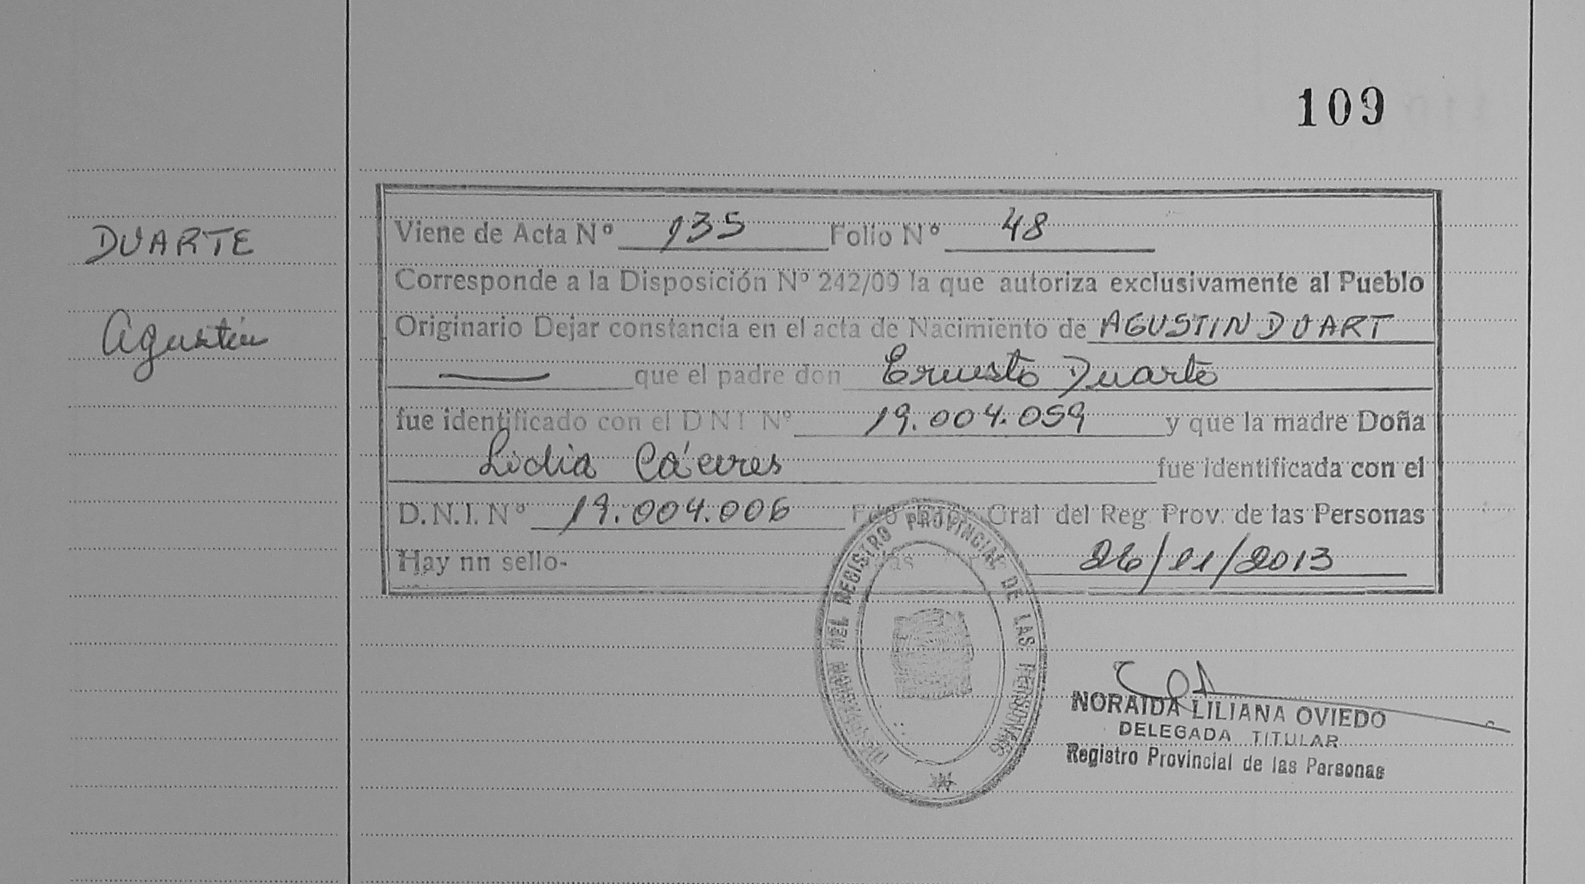 109
DUARTE
Agustín
Viene de Acta Nº 135 Folio Nº 48
Corresponde a la Disposición Nº 242/09 la que autoriza exclusivamente al Pueblo
Originario Dejar constancia en el acta de Nacimiento de AGUSTIN DUART
que el padre don Ernesto Duarte
fue identificado con el D N I Nº 19.004.059 y que la madre Doña
Lidia Cáceres fue identificada con el
D.N.I. Nº 19.004.006 Gral del Reg Prov. de las Personas
Hay nn sello- 26/11/2013
REGISTRO PROVINCIAL DE LAS PERSONAS
NORAIDA LILIANA OVIEDO
DELEGADA TITULAR
Registro Provincial de las Personas